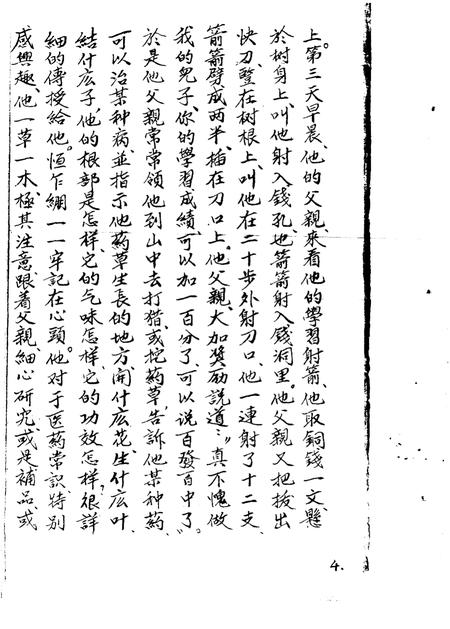 上。第三天早晨、他的父親、來看他的學習射箭、他取銅錢一文、懸
於树身上、叫他射入錢孔、也箭箭射入錢洞里。他父親又把拔出
快刀、豎在树根上、叫他在二十步外射刀口、他一連射了十二支、
箭箭劈成两半、插在刀口上。他父親、大加奖励説道：“真不愧做
我的兒子、你的學習成績、可以加一百分了、可以说百發百中了。”
於是他父親常常領他到山中去打猎、或挖葯草、告訴他某种葯、
可以治某种病、並指示他葯草生長的地方、開什庅花、生什庅叶、
結什庅子、他的根部是怎样、它的气味怎样、它的功效怎样？很詳
細的傳授給他。恒乍綳一一牢記在心頭。他对于医葯常識、特別
感興趣、他一草一木、極其注意、跟着父親細心研究、或是補品、或
4.